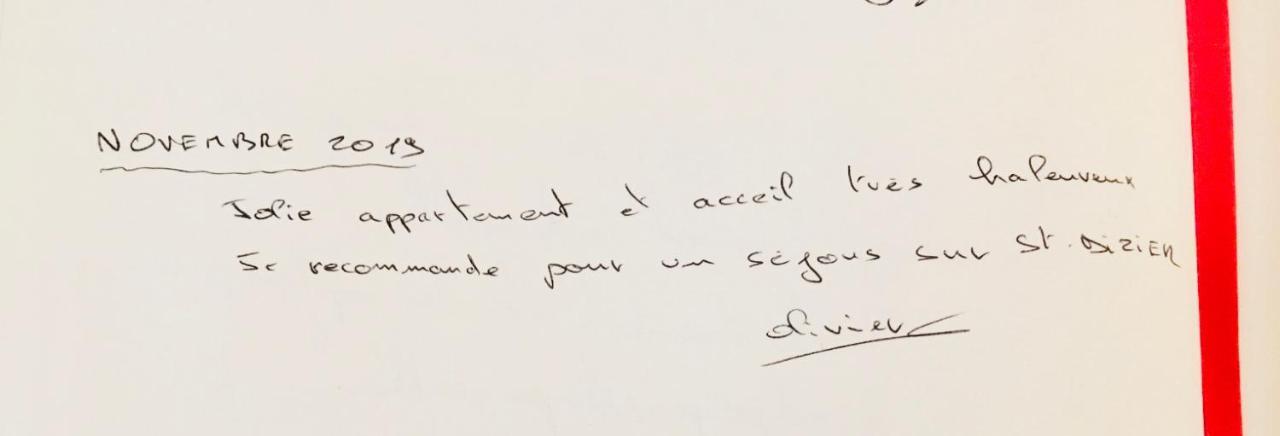 NOVEMBRE 2019
Jolie appartement et acceil très haleureux
Se recommande pour un séjous sur St. DIZIER
Olivier